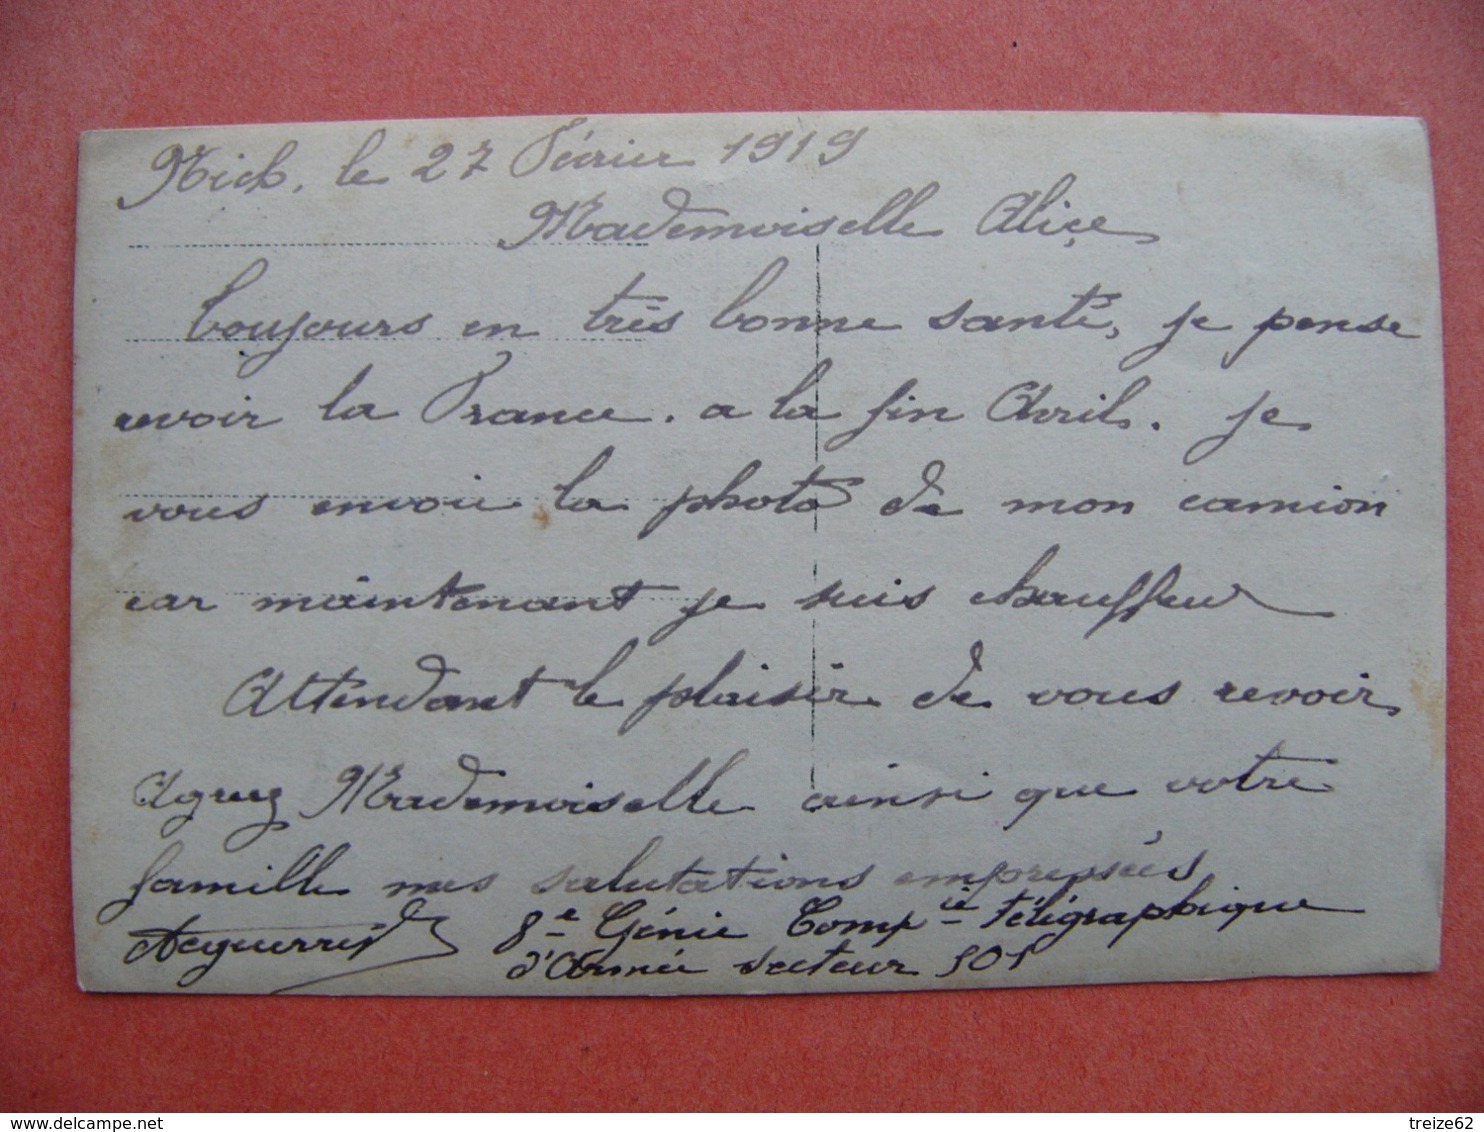 Nich, le 27 Février 1919
Mademoiselle Aliçe
Toujours en très bonne santé, je pense
revoir la France. a la fin Avril. je
vous envoie la photo de mon camion
car maintenant je suis chauffeur
Attendant le plaisir de vous revoir
Agreez Mademoiselle ainsi que votre
famille mes salutations empressées
8e Génie Compie Télégraphique
d'Armée secteur 501
treize62